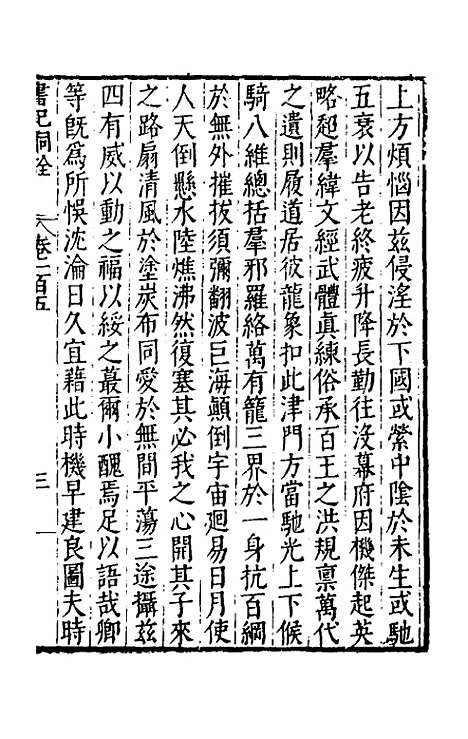 上方煩惱因兹侵淫於下國或縈中陰於未生或馳
五衰以告老終疲升降長勤往沒幕府因機傑起英
略超羣緯文經武體眞練俗承百王之洪規禀萬代
之遺則履道居彼龍象扣此津門方當馳光上下候
騎八維總括羣邪羅絡萬有籠三界於一身抗百綱
於無外摧拔須彌翻波巨海顛倒宇宙迴易日月使
人天倒懸水陸燋沸然復塞其必我之心開其子來
之路扇清風於塗炭布同愛於無間平蕩三途攝兹
四有威以動之福以綏之蕞爾小醜焉足以語哉卿
等旣爲所悞沈淪日久宜藉此時機早建良圖夫時
書記洞詮 卷一百五 三